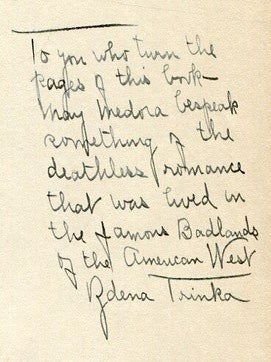 To you who turn the
pages of this book—
may Medora bespeak
something of the
deathless romance
that was lived in
the famous Badlands
of the American West
Zdena Trinka